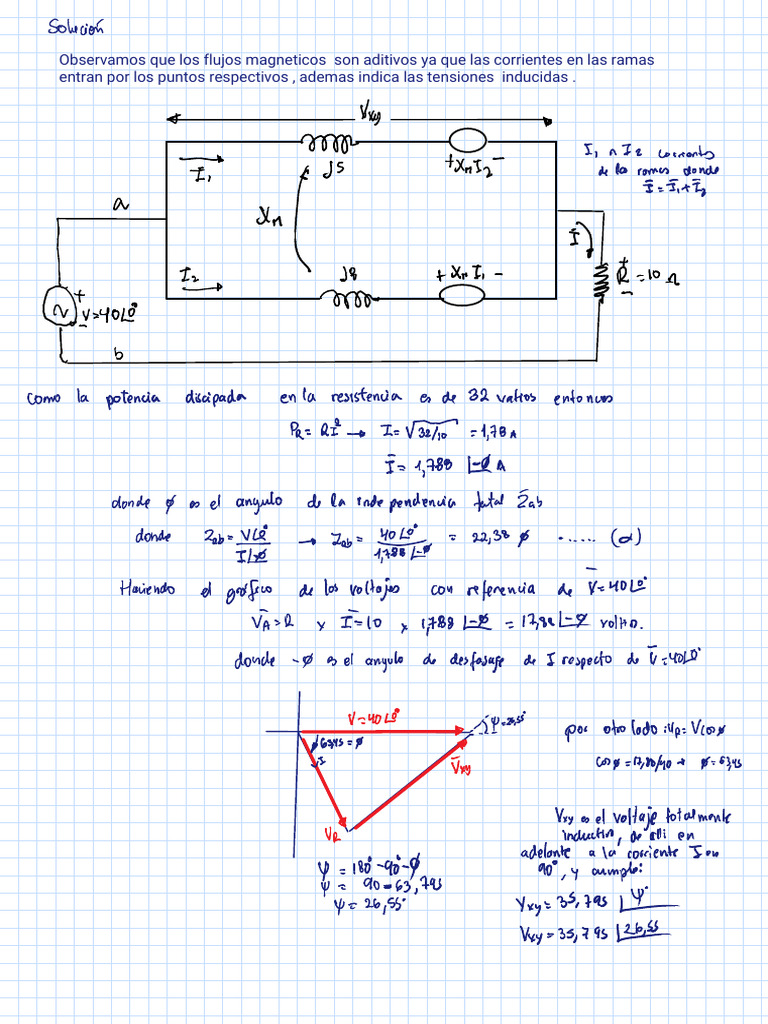 Solución
Observamos que los flujos magneticos son aditivos ya que las corrientes en las ramas
entran por los puntos respectivos , ademas indica las tensiones inducidas .
Vxy
I1
j5
+XmI2-
I1 n I2 corrientes
de las ramas donde
Ī = Ī1 + Ī2
a
Xm
I2
j8
+ Xm I1 -
Ī
+
R = 10 Ω
-
+
V=40∠0°
-
b
como la potencia discipada en la resistencia es de 32 vatios entonces
PR = RI² → I = √32/10 = 1,78 A
Ī = 1,788 ∠-φ A
donde φ es el angulo de la independencia total Z̄ab
donde Zab = V∠0°/I∠-φ → Zab = 40∠0°/1,788∠-φ = 22,38 φ ...... (α)
Haciendo el gráfico de los voltajes con referencia de V̄=40∠0°
V̄A = R x Ī = 10 x 1,788 ∠-φ = 17,88 ∠-φ volts.
donde -φ es el angulo de desfasage de I respecto de V̄=40∠0°
V=40∠0°
ψ=26,55°
φ 63,45 = φ
I
V̄xy
VR
por otro lado : VR = V cos φ
cos φ = 17,88/40 → φ = 63,45
Vxy es el voltaje totalmente
inductivo, de alli en
adelante a la corriente I en
90°, y cumple:
Vxy = 35,795 ∠ψ°
Vxy = 35,795 ∠26,55
ψ = 180° - 90° - φ
ψ = 90 - 63,795
ψ = 26,55°